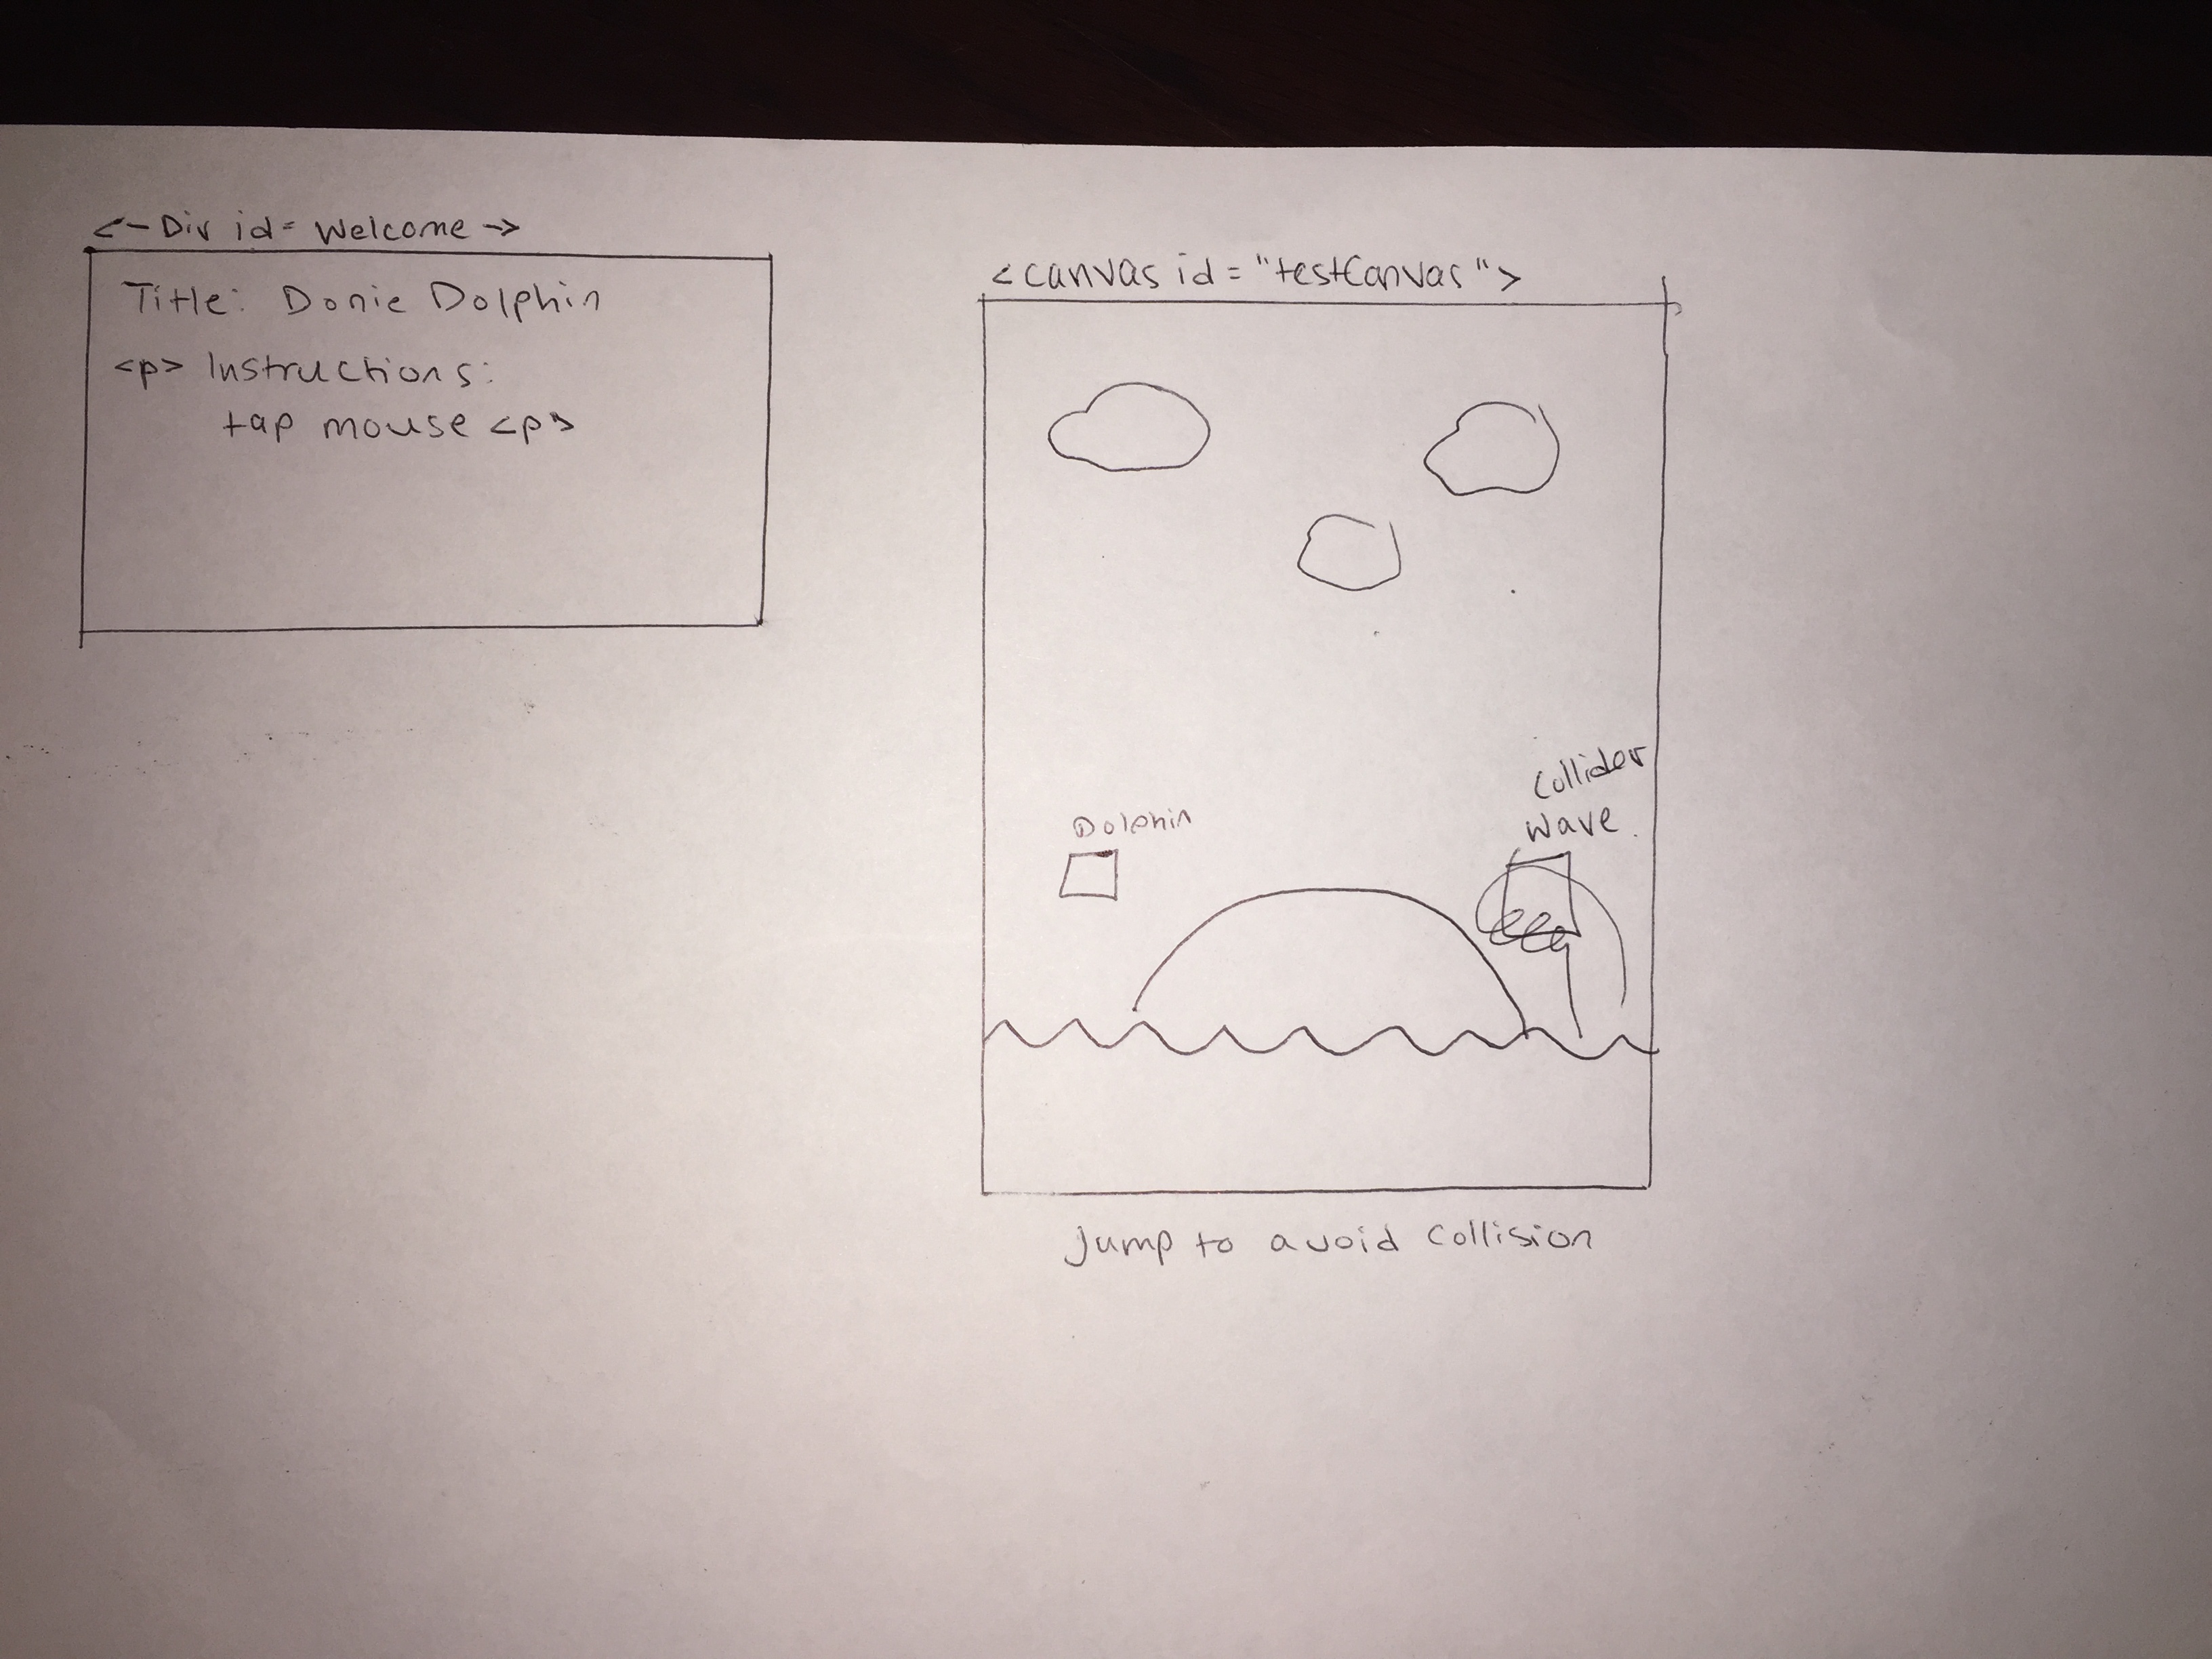 <- Div id = Welcome ->
Title: Donie Dolphin
<p> Instructions:
tap mouse <p>
<canvas id = "testCanvas">
Dolphin
Collider
Wave
Jump to avoid collision